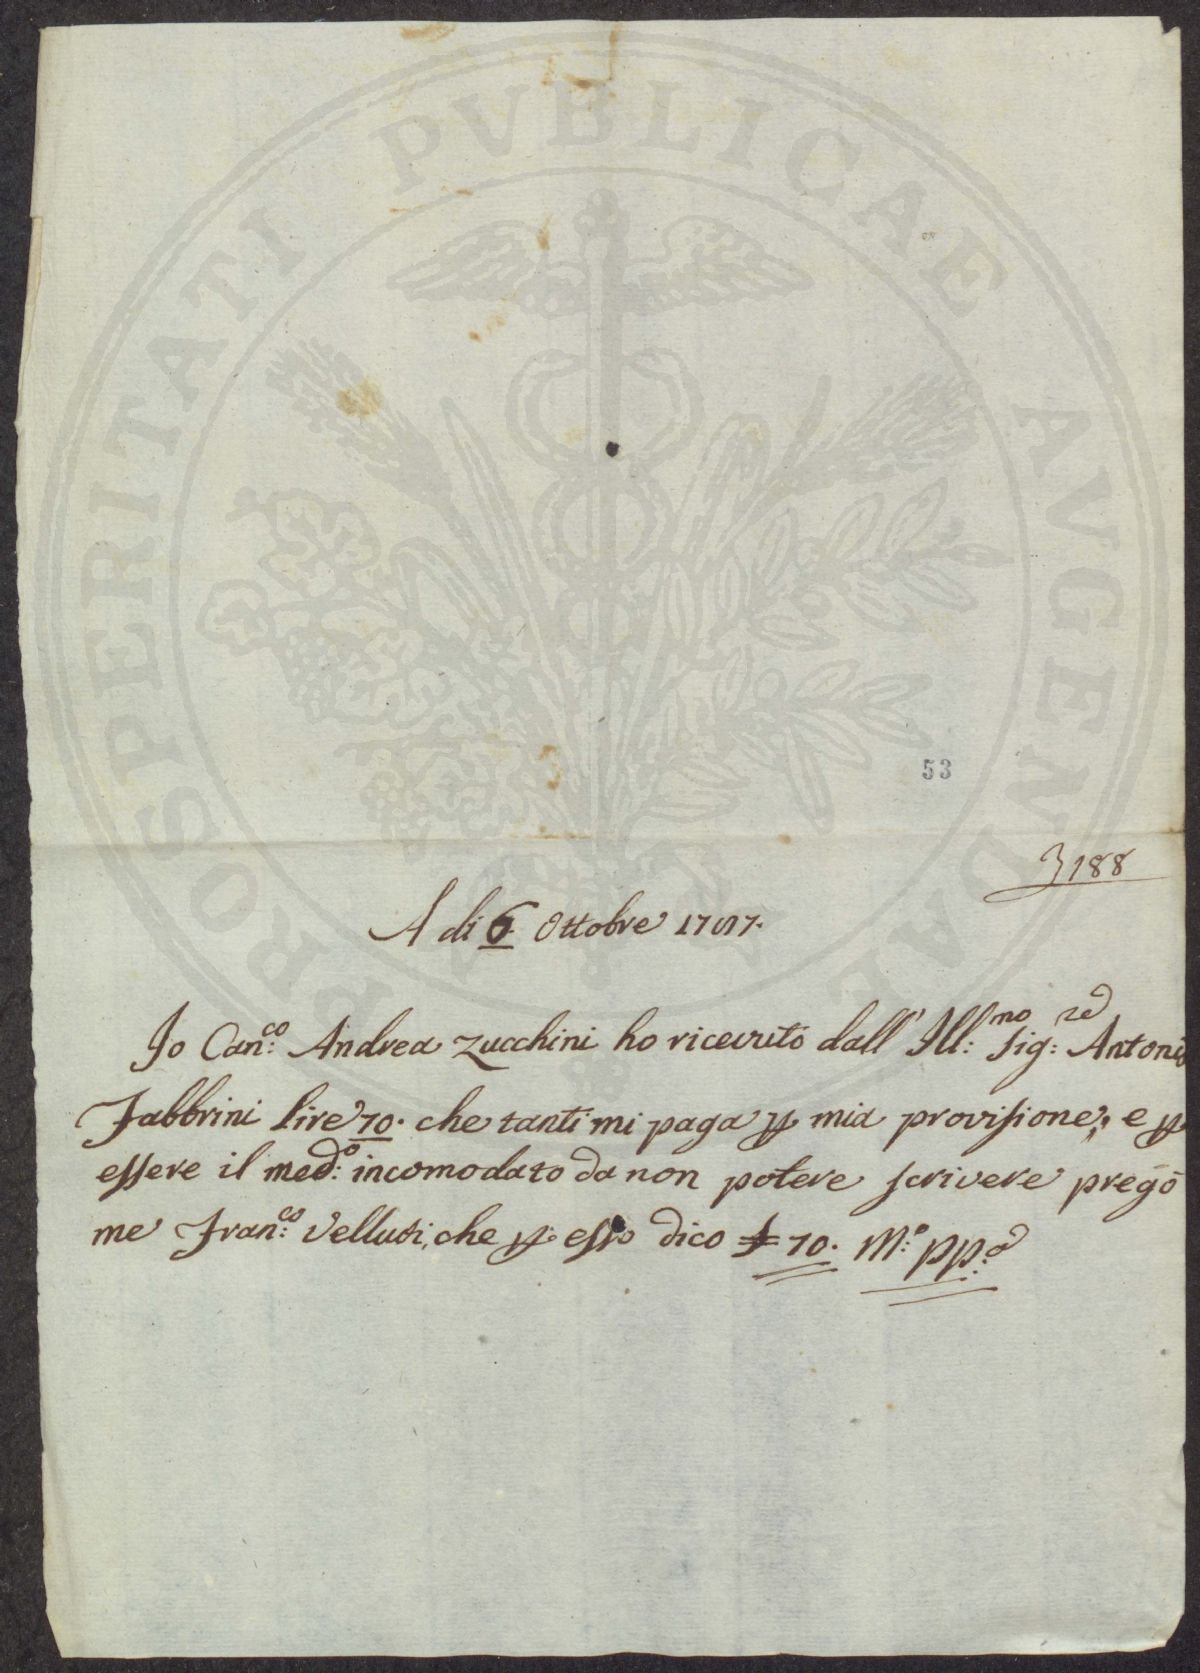 PROSPERITATI PVBLICAE AVGENDAE
53
3188
A di 6. Ottobre 1787.
Io Can:co Andrea Zucchini ho ricevuto dall' Ill:mo Sig:re Antonio
Fabbrini lire 70. che tanti mi paga p mia provisione; e p
essere il med:o incomodato da non potere scrivere pregò
me Fran:co Velluti, che p esso dico £ 70. M:o pp:a